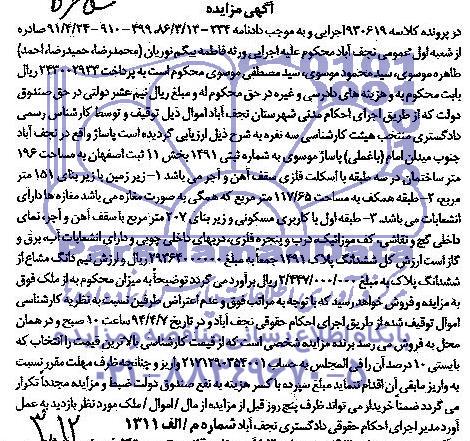 آگهی مزایده
در پرونده کلاسه ۹۳۰۶۱۹ اجرایی و به موجب دادنامه ۲۳۴-۸۶/۳/۱۳ ۴۹۹-۹۱۰-۹۱/۴/۲۴ صادره
از شعبه اول عمومی نجف آباد محکوم علیه اجرایی ورثه فاطمه بیگم نوریان (محمدرضا، حمیدرضا، احمد)
طاهره موسوی، سید محمود موسوی، سید مصطفی موسوی محکوم است به پرداخت ۲۳۴۰۰۲۹۳۴ ریال
بابت محکوم به و هزینه های دادرسی و غیره در حق محکوم له و مبلغ ریال نیم عشر دولتی در حق صندوق
دولت که از طریق اجرای احکام مدنی شهرستان نجف آباد اموال ذیل توقیف و توسط کارشناس رسمی
دادگستری منتخب هیئت کارشناسی سه نفره به شرح ذیل ارزیابی گردیده است پاساژ واقع در نجف آباد
جنوب میدان امام (باغملی) پاساژ موسوی به شماره ثبتی ۱۴۹۱ بخش ۱۱ ثبت اصفهان به مساحت ۱۹۶
متر ساختمان در سه طبقه با اسکلت فلزی سقف آهن و آجر می باشد ۱- زیر زمین با زیر بنای ۱۵۱ متر
مربع، ۲- طبقه همکف به مساحت ۱۱۷/۶۵ متر مربع که همگی به صورت مغازه می باشد مغازه ها دارای
انشعابات می باشد. ۳- طبقه اول با کاربری مسکونی و زیر بنای ۲۰۷ متر مربع با سقف آهن و آجر، نمای
داخلی گچ و نقاشی، کف موزائیک، درب و پنجره فلزی، دربهای داخلی چوبی و دارای انشعابات آب، برق و
گاز است ارزش کل ششدانگ پلاک ۱۴۹۱ جمعاً به مبلغ ریال و ارزش نیم دانگ مشاع از
ششدانگ پلاک به مبلغ ۲/۴۴۷/۰۰۰/۰۰۰ ریال برآورد می گردد توضیحاً به میزان محکوم به از ملک فوق
به مزایده و فروش خواهد رسید که با توجه به مراتب فوق و عدم اعتراض طرفین نسبت به نظریه کارشناسی
اموال توقیف شده از طریق اجرای احکام حقوقی نجف آباد و در تاریخ ۹۴/۴/۷ ساعت ۱۰ صبح و در همان
محل به فروش می رسد برنده مزایده شخصی است که از قیمت کارشناسی بالاترین قیمت را انتخاب که
بایستی ۱۰ درصد آن را فی المجلس به حساب واریز و چنانچه ظرف مهلت مقرر نسبت
به واریز مابقی آن اقدام ننماید مبلغ سپرده با کسر هزینه به نفع صندوق دولت ضبط و مزایده مجدداً تکرار
می گردد ضمناً خریدار می تواند ظرف پنج روز قبل از مزایده از مال / اموال / ملک مورد نظر بازدید به عمل
آورد مدیر اجرای احکام حقوقی دادگستری نجف آباد شماره م / الف ۱۳۱۱